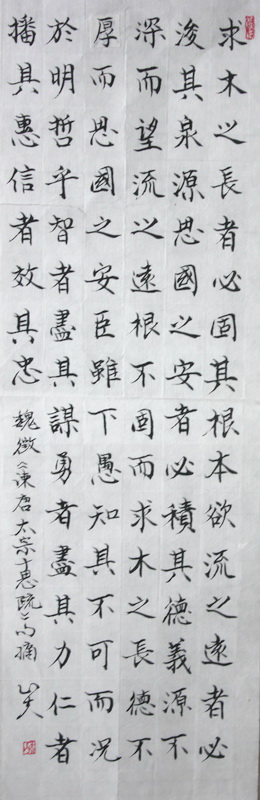 求木之長者必固其根本欲流之遠者必
浚其泉源思國之安者必積其德義源不
深而望流之遠根不固而求木之長德不
厚而思國之安臣雖下愚知其不可而況
於明哲乎智者盡其謀勇者盡其力仁者
播其惠信者效其忠
魏徵《諫唐太宗十思疏》